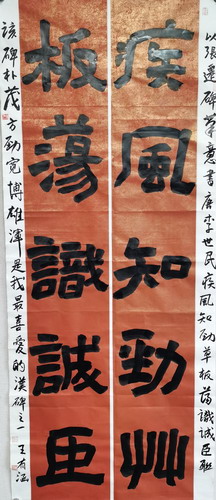 疾風知勁艸
板蕩識誠臣
以張遷碑筆意書唐李世民疾風知勁草板蕩識誠臣聯
該碑朴茂方勁寬博雄渾是我最喜愛的漢碑之一王有法